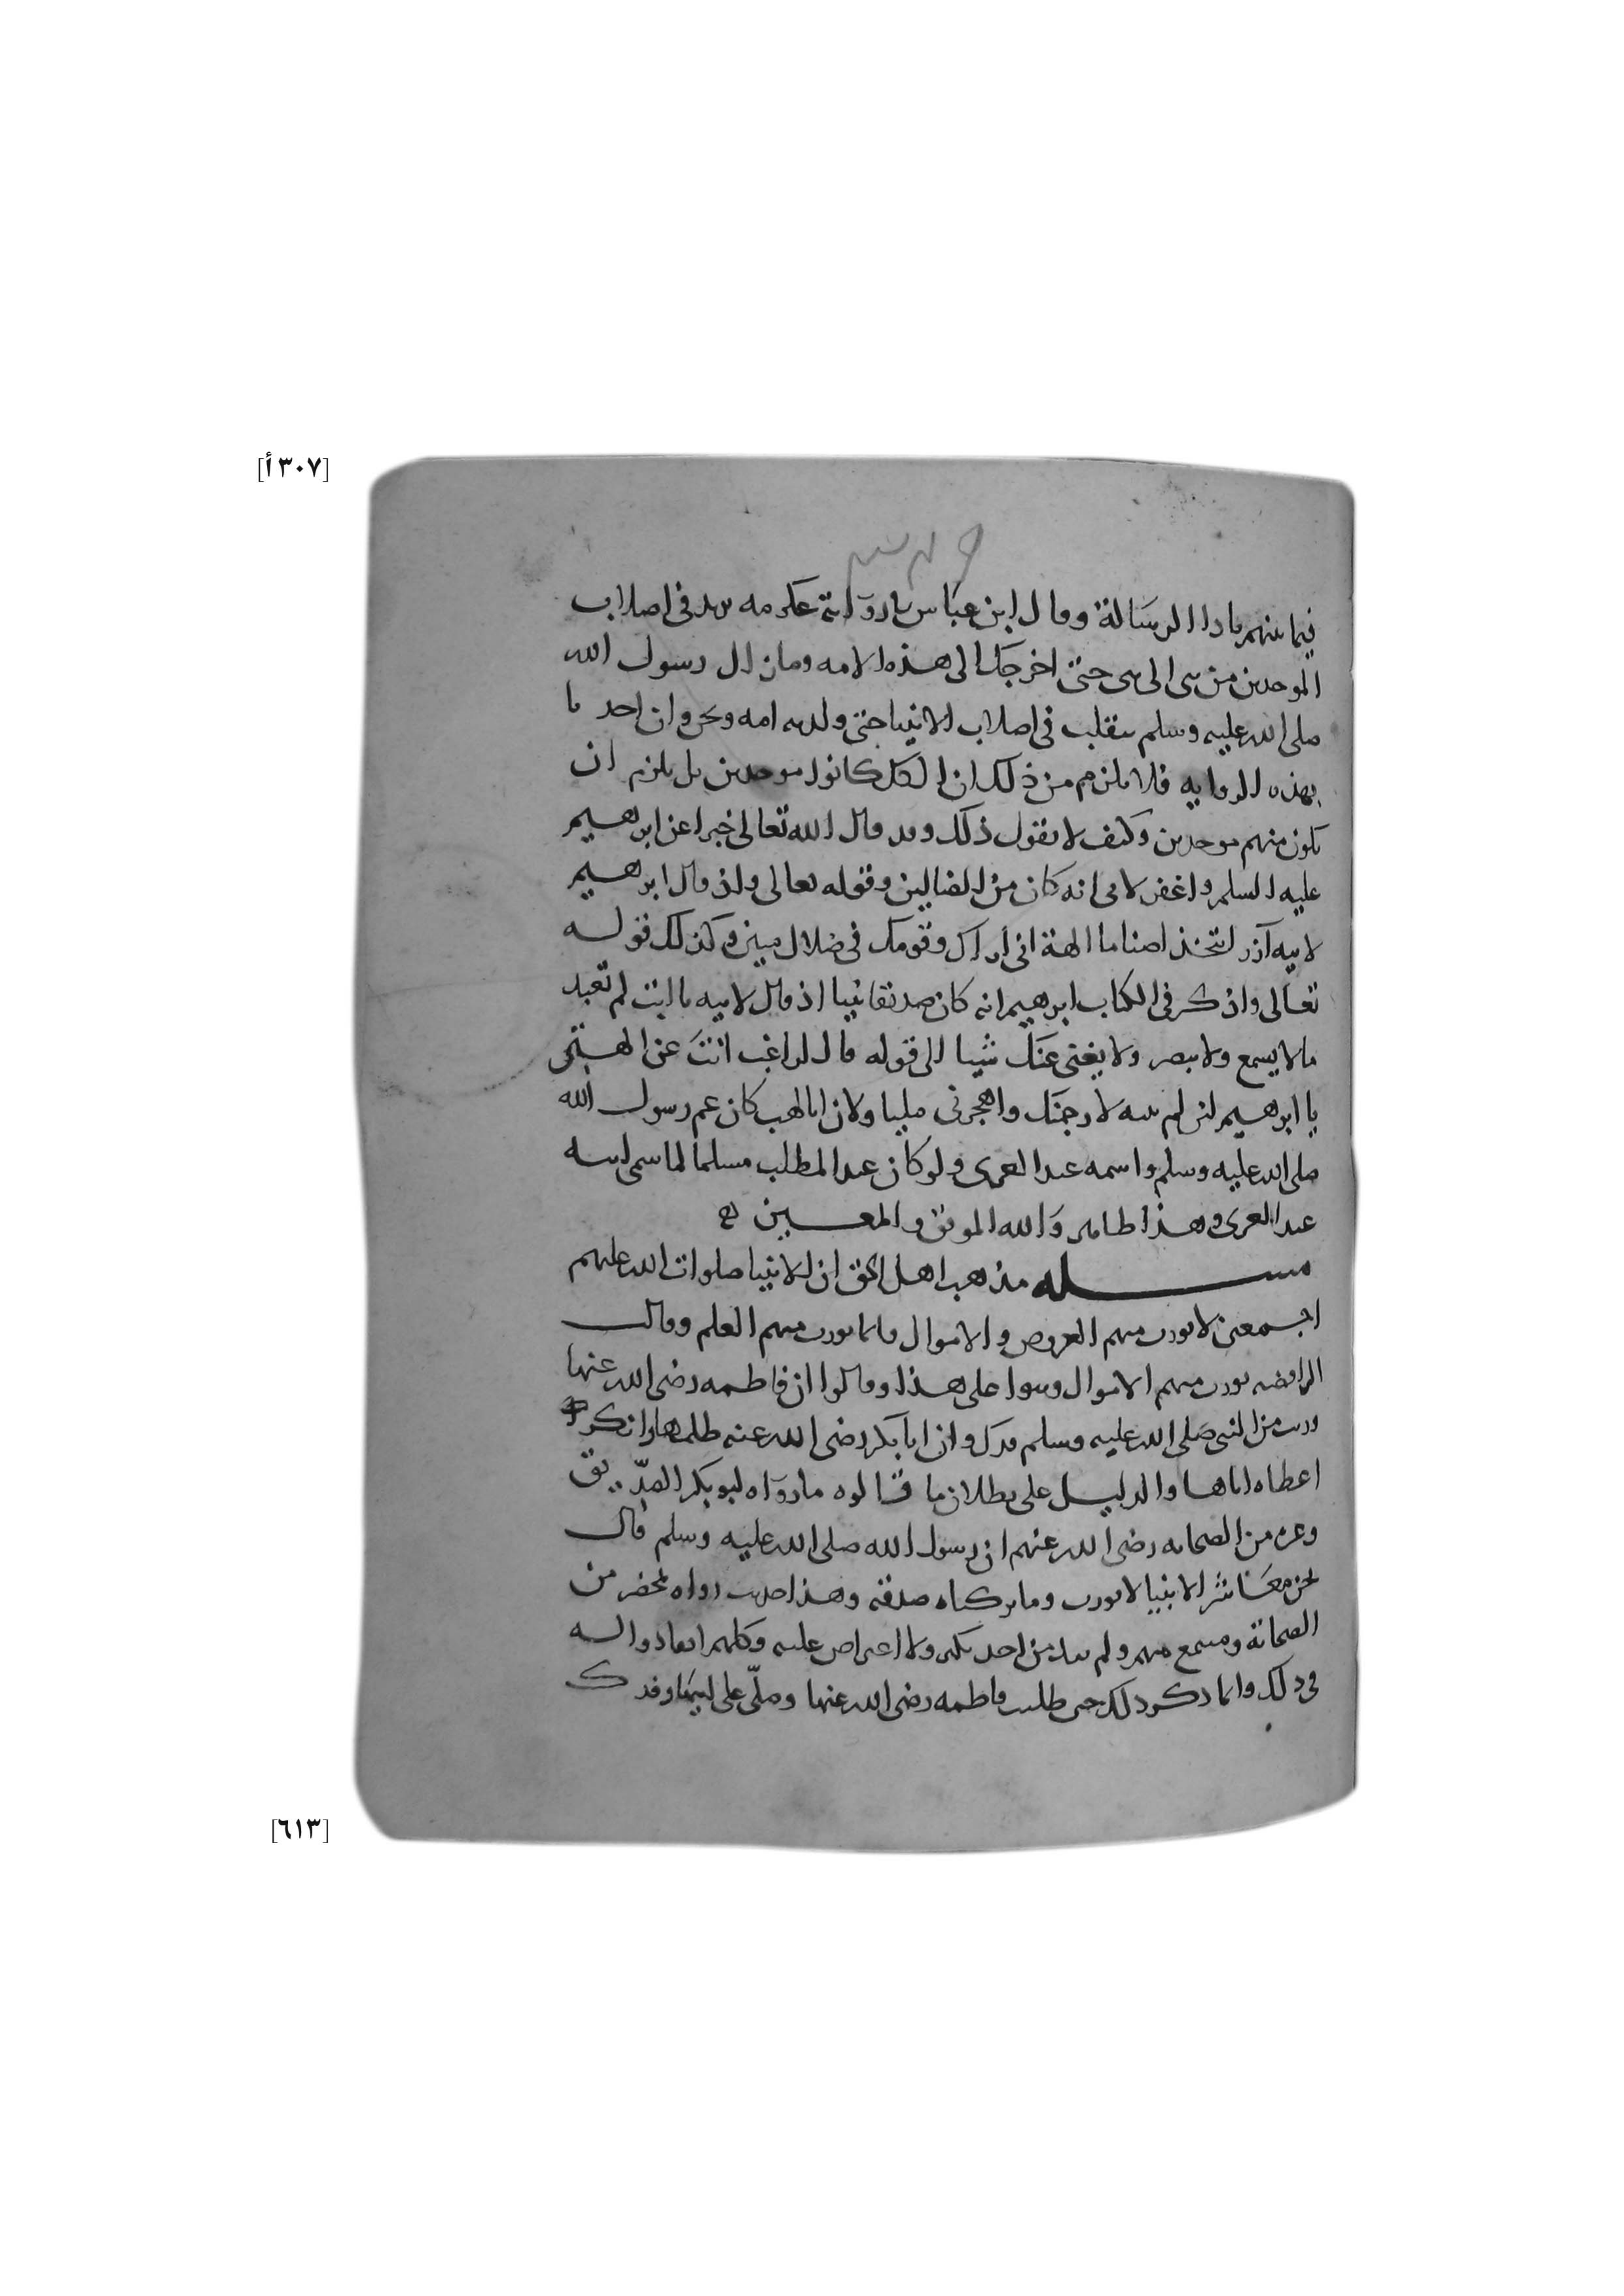 [٣٠٧أ]
فيما بينهم بادا الرسالة وقال ابن عباس بارواية عكرمه يريد فى اصلاب
الموحدين من نبى الى نبى حتى اخرجك الى هذه الامه ومازال رسول الله
صلى الله عليه وسلم يتقلب فى اصلاب الانبيا حتى ولدته امه ونحن وان احد نا
بهذه الروايه فلا يلزم من ذلك ان الكل كانوا موحدين بل يلزم ان
يكون منهم موحدين وكيف لا يقول ذلك وقد قال الله تعالى خبرا عن ابرهيم
عليه السلم واغفر لابى انه كان من الضالين وقوله تعالى واذ قال ابرهيم
لابيه آزر اتتخذ اصناما الهة انى اراك وقومك فى ضلال مبين وكذلك قوله
تعالى واذكر فى الكتاب ابرهيم انه كان صديقا نبيا اذ قال لابيه يا ابت لم تعبد
ما لا يسمع ولا يبصر ولا يغنى عنك شيا الى قوله قال اراغب انت عن الهتى
يا ابرهيم لئن لم تنته لارجمنك واهجرنى مليا ولان ابا لهب كان عم رسول الله
صلى الله عليه وسلم واسمه عبد العزى ولو كان عبد المطلب مسلما لما سمى ابنه
عبد العزى وهذا ظاهر والله الموفق والمعين
مسله مذهب اهل الحق ان الانبيا صلوات الله عليهم
اجمعين لا يورث منهم العروض والاموال وانما يورث منهم العلم وقالت
الرافضه يورث منهم الاموال وبنوا على هذا وقالوا ان فاطمه رضى الله عنها
ورثت من النبى صلى الله عليه وسلم فدك وان ابا بكر رضى الله عنه ظلمها وانكر
اعطاه اياها والدليل على بطلان ما قالوه ما رواه ابو بكر الصديق
وغيره من الصحابه رضى الله عنهم ان رسول الله صلى الله عليه وسلم قال
نحن معاشر الانبيا لا نورث وما تركناه صدقة وهذا حديث رواه بمحضر من
الصحابة ومسمع منهم ولم يبد من احد نكير ولا اعتراض عليه وكلهم انقادوا له
فى ذلك وانما ذكر ذلك حين طلبت فاطمه رضى الله عنها وعلى فدك
[٦١٣]